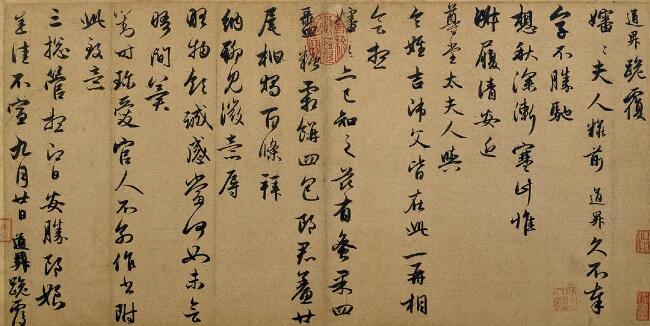 道昇跪覆
嬸〻夫人粧前道昇久不奉
字不勝馳
想秋深漸寒計惟
淑履清安近
尊堂太夫人與
令姪吉師父皆在此一再相
會想
嬸〻亦已知之茲有蜜果四
盝糖霜餅四包郎君鯗廿
尾柏燭百條拜
納聊見微意辱
略物領誠感當何如未會
晤間冀
對時珍愛官人不別作書附
此致意
三總管想即日安勝郎娘
悉佳不宣九月廿日道昇跪覆